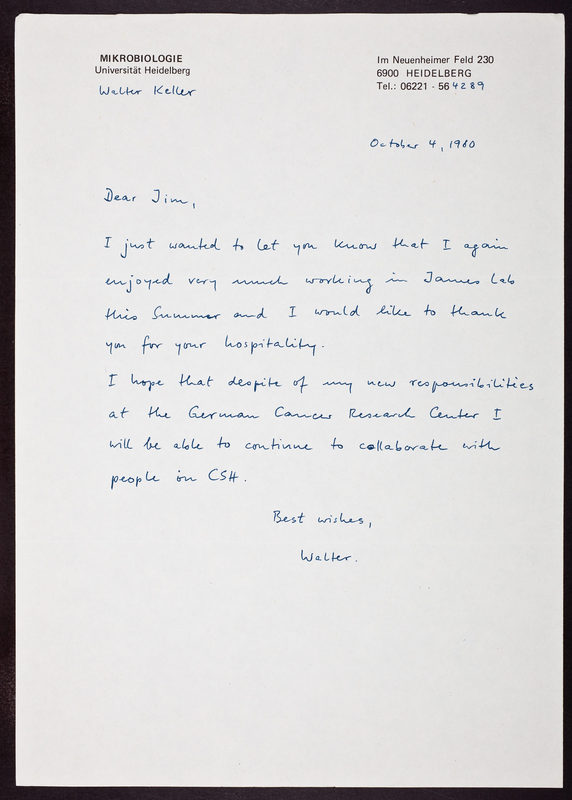 MIKROBIOLOGIE
Universität Heidelberg
Walter Keller
Im Neuenheimer Feld 230
6900 HEIDELBERG
Tel.: 06221 - 56 4289
October 4, 1980
Dear Jim,
I just wanted to let you know that I again
enjoyed very much working in James Lab
this Summer and I would like to thank
you for your hospitality.
I hope that despite of my new responsibilities
at the German Cancer Research Center I
will be able to continue to collaborate with
people in CSH.
Best wishes,
Walter.